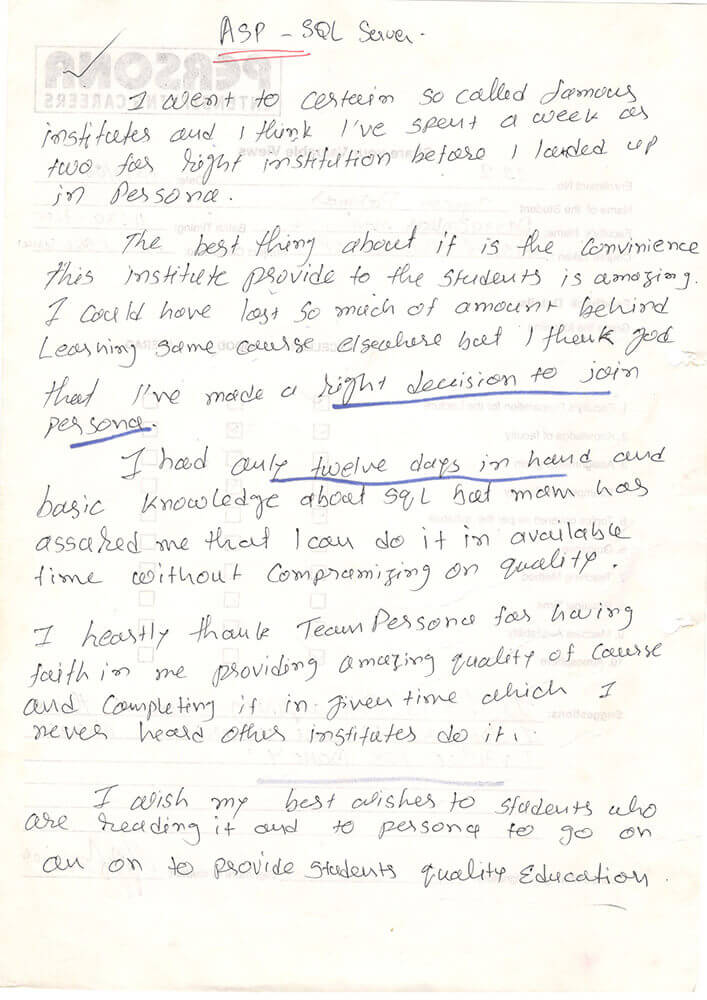 ASP - SQL Server.
I went to certain so called famous
institutes and I think I've spent a week or
two for right institution before I landed up
in Persona.
The best thing about it is the convinience
this institute provide to the students is amazing.
I could have lost so much of amount behind
Learning same course elsewhere but I thank god
that I've made a right decision to join
persona.
I had only twelve days in hand and
basic knowledge about SQL but mam has
assured me that I can do it in available
time without compramizing on quality.
I heartly thank Team Persona for having
faith in me providing amazing quality of course
and completing it in given time which I
never heard other institutes do it.
I wish my best wishes to students who
are reading it and to persona to go on
an on to provide students quality Education.